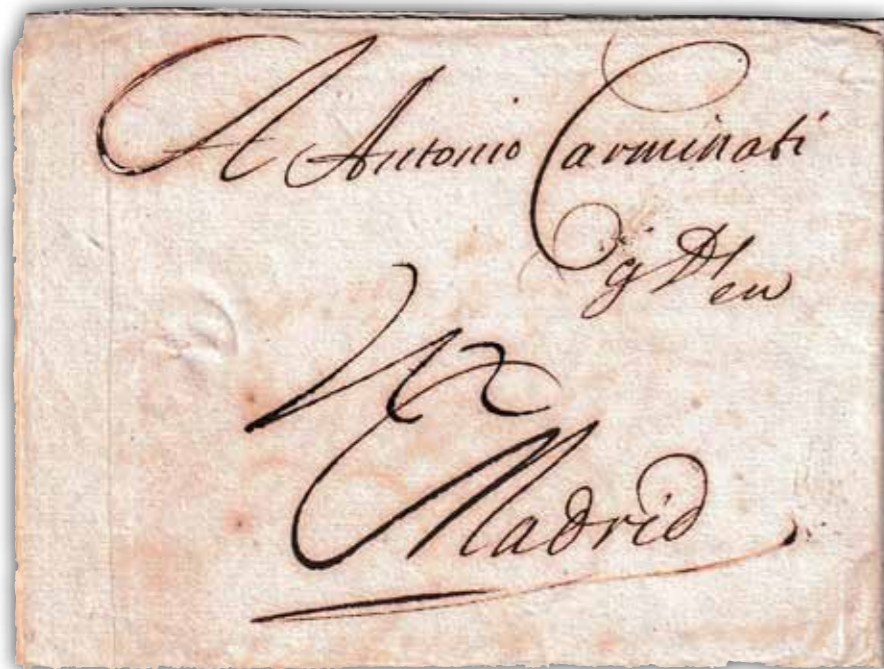 A Antonio Carminati
g Ds en
Madrid